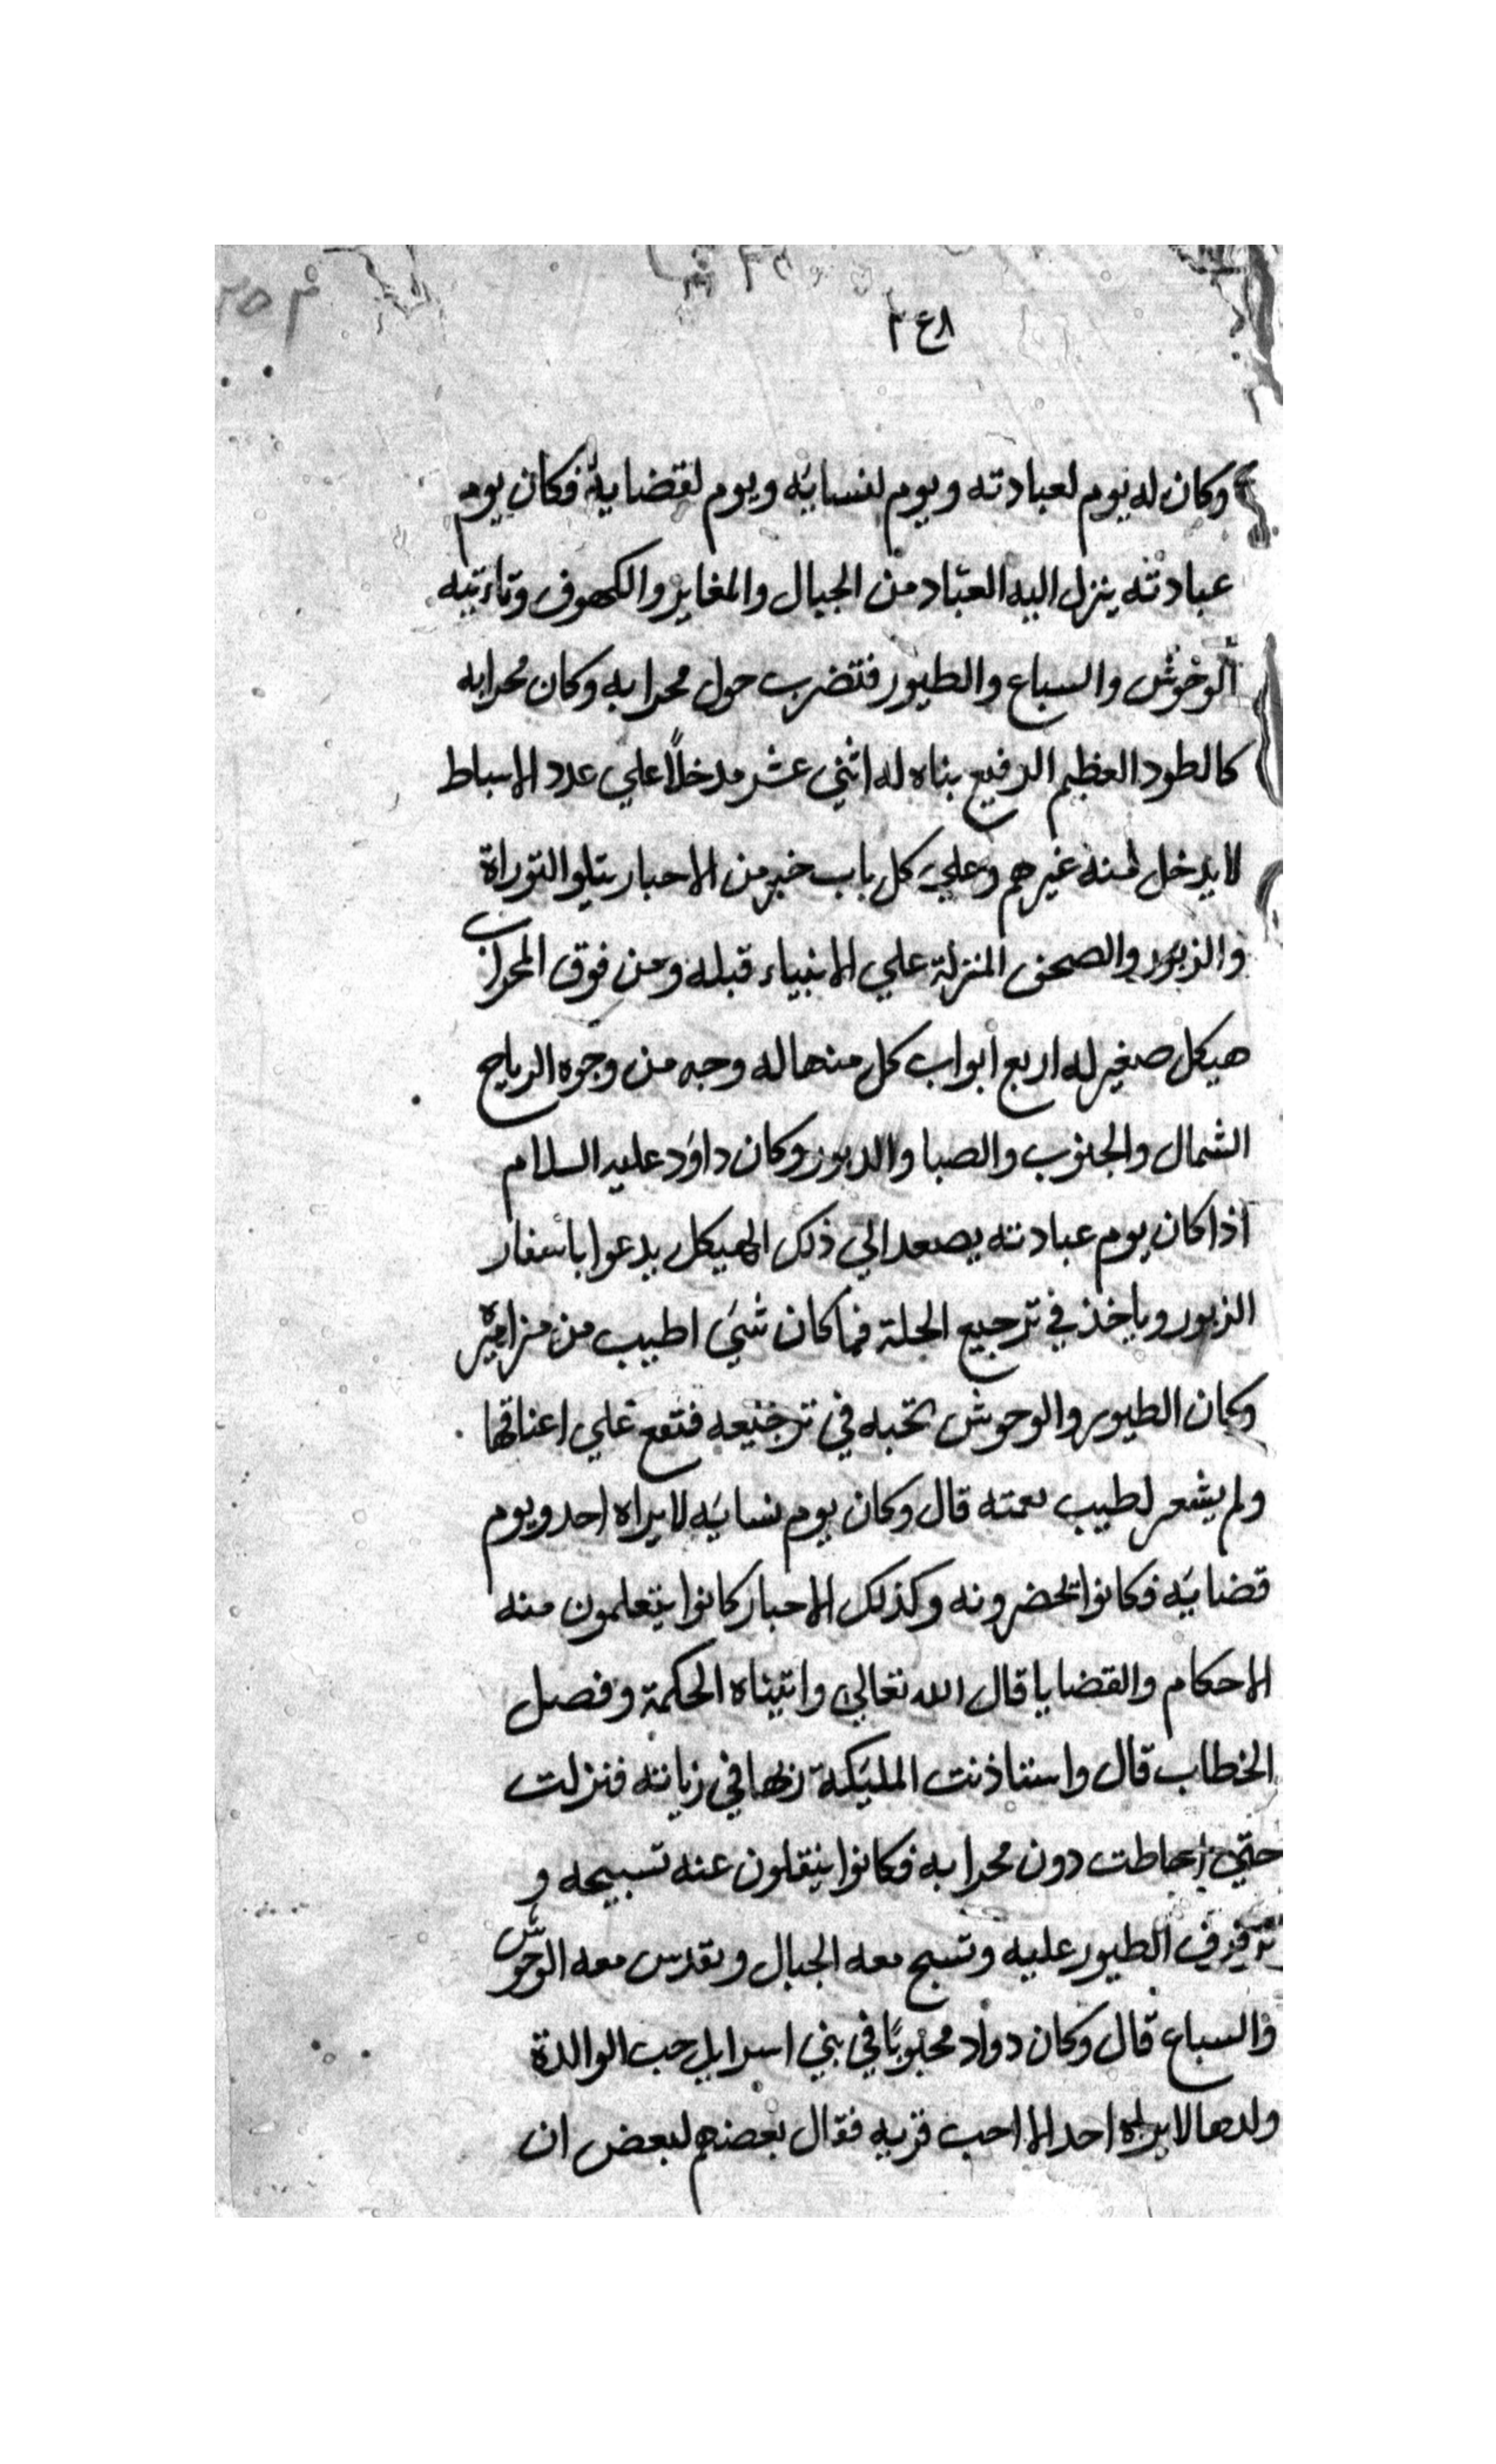 ٢٤٨
وكان له يوم لعبادته ويوم لنسايه ويوم لقضايه فكان يوم
عبادته ينزل اليه العبّاد من الجبال والمغاير والكهوف وتاءتيه
الوحوش والسباع والطيور فتضرب حول محرابه وكان محرابه
كالطود العظيم الرفيع بناه له اثني عشر مدخلاً علي عدد الاسباط
لا يدخل منه غيرهم وعلي كل باب خبر من الاحبار يتلو التوراة
والزبور والصحف المنزلة علي الانبياء قبله ومن فوق المحراب
هيكل صغير له اربع ابواب كل منها له وجه من وجوه الرياح
الشمال والجنوب والصبا والدبور وكان داود عليه السلام
اذا كان يوم عبادته يصعد الي ذلك الهيكل يدعوا باسفار
الزبور وياخذ في ترجيع الجلة فما كان شيء اطيب من مزاميره
وكان الطيور والوحوش تحبه في ترجيعه فتقع علي اعناقها
ولم يشعر لطيب نعمته قال وكان يوم نسايه لا يراه احد ويوم
قضايه فكانوا يحضرونه وكذلك الاحبار كانوا يتعلمون منه
الاحكام والقضايا قال الله تعالي واتيناه الحكمة وفصل
الخطاب قال واستاذنت المليكة ربها في زيارته فنزلت
حتي احاطت دون محرابه فكانوا ينقلون عنه تسبيحه و
ترفرف الطيور عليه وتسبح معه الجبال وتقدس معه الوحوش
والسباع قال وكان دواد محبوبًا في بني اسرايل حب الوالدة
ولدها لا يراه احد الا احب قربه فقال بعضهم لبعض ان